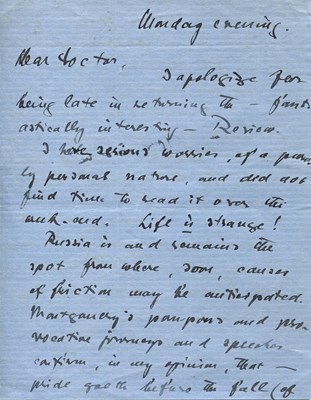 Monday evening.
Dear Doctor,
I apologize for
being late in returning the – fant-
astically interesting – Review.
I have serious worries, of a pure-
ly personal nature, and did not
find time to read it over the
week-end. Life is strange!
Russia is and remains the
spot from where, soon, causes
of friction may be anticipated.
Montgomery's pompous and pro-
vocative journeys and speeches
confirm, in my opinion, that –
pride goeth before the fall (of